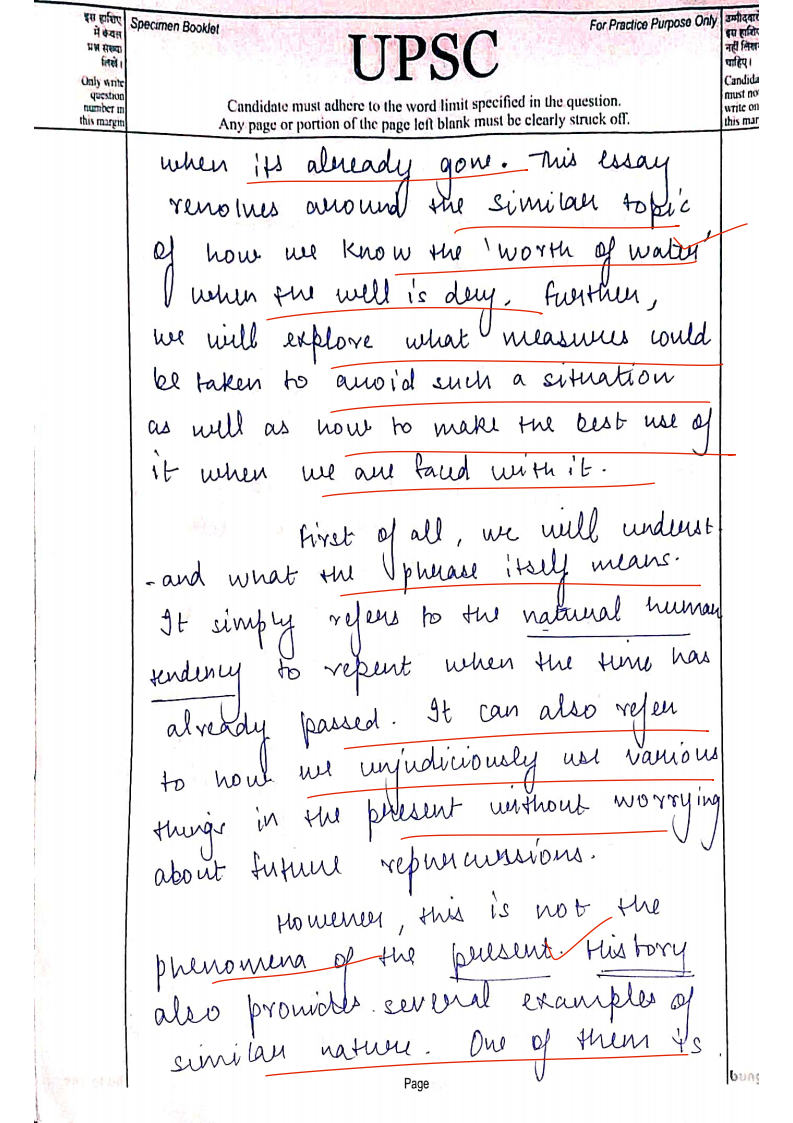 इस हाशिए
में केवल
प्रश्न संख्या
लिखें।
Only write
question
number in
this margin
Specimen Booklet
For Practice Purpose Only
UPSC
Candidate must adhere to the word limit specified in the question.
Any page or portion of the page left blank must be clearly struck off.
उम्मीदवार
इस हाशिए
नहीं लिखना
चाहिए।
Candida
must no
write on
this mar
when its already gone. This essay
revolves around the similar topic
of how we know the 'worth of water'
when the well is dry. Further,
we will explore what measures could
be taken to avoid such a situation
as well as how to make the best use of
it when we are faced with it.
First of all, we will underst
-and what the phrase itself means.
It simply refers to the natural human
tendency to repent when the time has
already passed. It can also refer
to how we unjudiciously use various
things in the present without worrying
about future repurcussions.
However, this is not the
phenomena of the present. History
also provides several examples of
similar nature. One of them is
Page